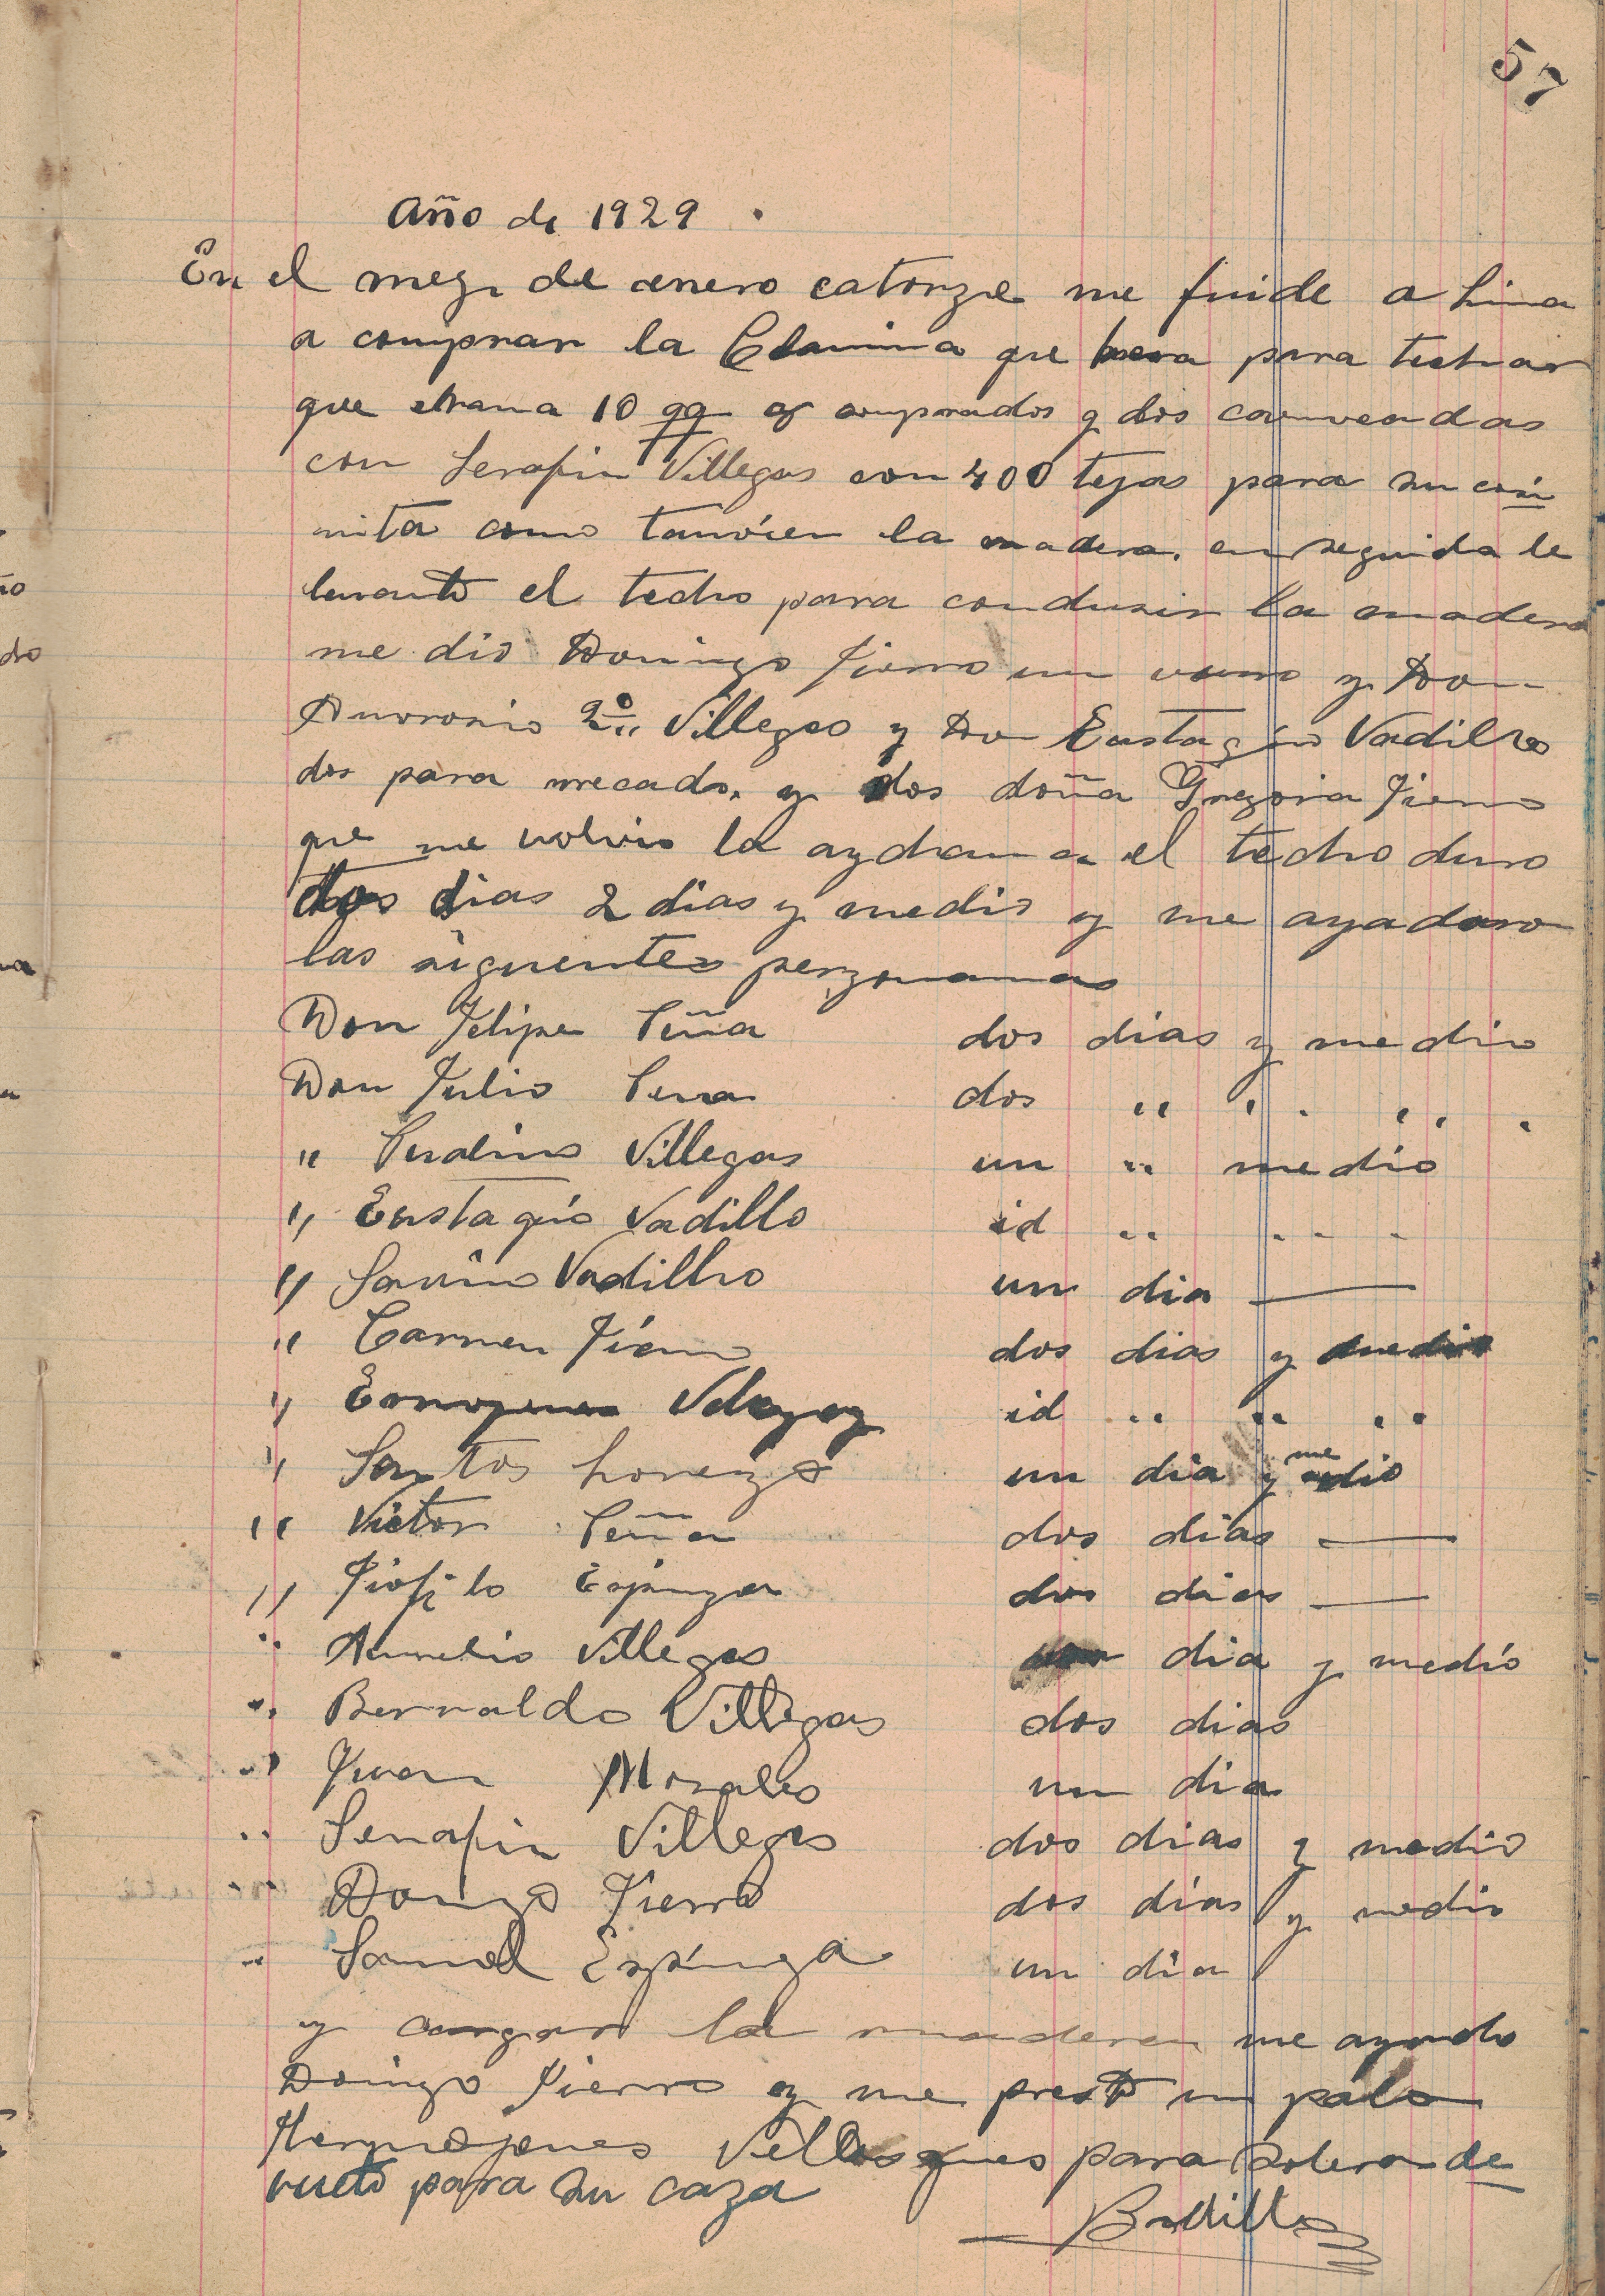 57
Año de 1929.
En el mez de enero catorze me fuide a Lima
a comprar la Clamina que hera para techar
que eran a 10 qq comprados y dos
con Serafin Villegas con 400 tejas para su coci
nita como tanvien la madera. en seguida le
bante el techo para condusir la madera
me dio Domingo Fierro un y Don
2º Villegas y Don Eustaqio Vadillo
dos para mecado. y dos doña Gregoria Fierro
que me volvio la el techo duro
dos dias 2 dias y medio y me ayadaro
las siguentes
Don Felipe Peña dos dias y medio
Don Julio Pena dos " " " "
" Villegas un " medio
" Eustaqio Vadillo id " " "
" Savino Vadillo un dia —
" Carmen Fierro dos dias y medio
" id " " "
" Santos Lorenzo un dia y medio
" Victor Peña dos dias —
" Tiofilo Espinza dos dias —
" Aurelio Villegas dia y medio
" Bernaldo Villegas dos dias
" Juan Morales un dia
" Serafin Villegas dos dias y medio
" Domgo Fierro dos dias y medio
" Samuel Espinza un dia
y cargar la madera me ayudo
Domigo Fierro y me presto un palo
Hermojenes para solera de
vueto para su caza
Badillo